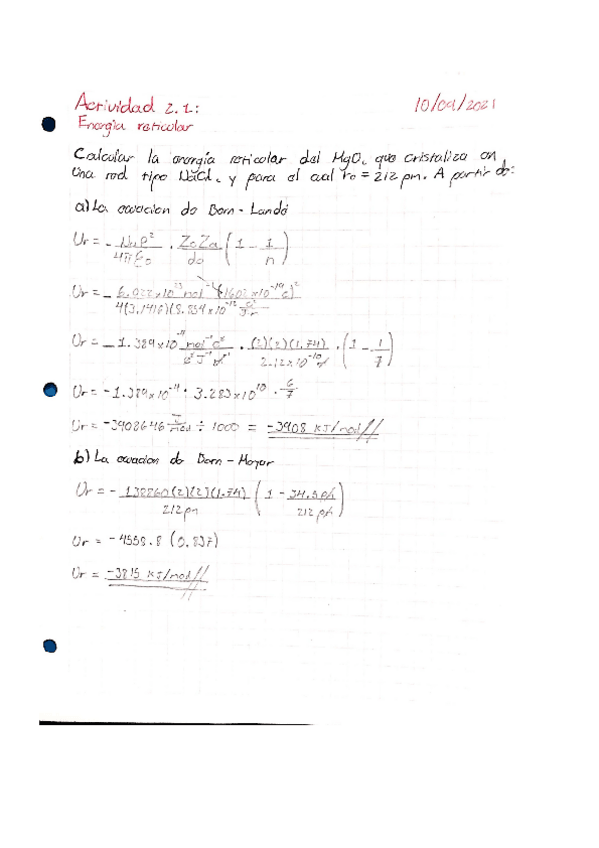 Actividad 2.1:
10/09/2021
Energía reticular
Calcular la energía reticular del MgO, que cristaliza en
una red tipo NaCl, y para el cual ro = 212 pm. A partir de:
a) La ecuacion de Born - Landé
Ur = - NaE² / 4πEo · ZcZa / do (1 - 1/n)
Ur = - 6.022x10²³ mol⁻¹ (1.602x10⁻¹⁹ C)² / 4(3.1416)(8.854x10⁻¹²
Ur = - 1.389x10⁻⁴ · (2)(2)(1.74) / 2.12x10⁻¹⁰ · (1 - 1/7)
Ur = -1.389x10⁻⁴ · 3.283x10¹⁰ · 6/7
Ur = -3908646 J/mol ÷ 1000 = -3908 KJ/mol//
b) La ecuacion de Born - Mayer
Ur = - 138860(2)(2)(1.74) / 212pm (1 - 34.5 pm / 212 pm)
Ur = -4558.8 (0.837)
Ur = -3815 KJ/mol//